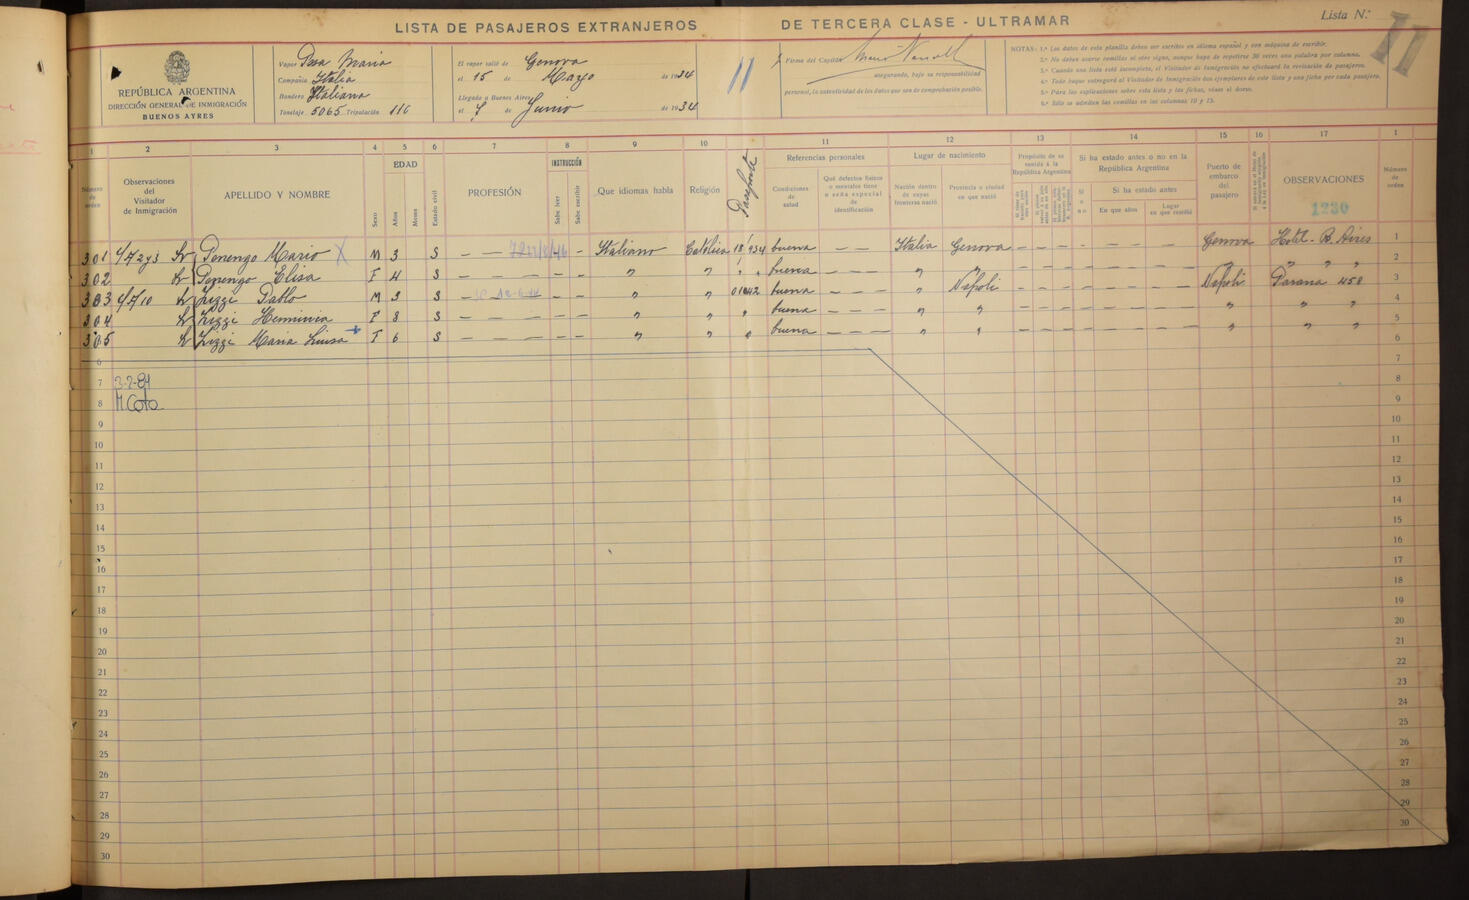 LISTA DE PASAJEROS EXTRANJEROS DE TERCERA CLASE - ULTRAMAR
Lista N.º 11
REPÚBLICA ARGENTINA
DIRECCIÓN GENERAL DE INMIGRACIÓN
BUENOS AYRES
Vapor Maria
Compañía Italia
Bandera Italiana
Tonelaje 5065 Tripulación 116
El vapor salió de Genova
el 15 de Mayo de 1934
Llegado a Buenos Aires
el 7 de Junio de 1934
11
Firma del Capitán
asegurando, bajo su responsabilidad
personal, la autenticidad de los datos que son de comprobación posible.
NOTAS: 1.ª Los datos de esta planilla deben ser escritos en idioma español y con máquina de escribir.
2.ª No deben usarse comillas ni otro signo, aunque haya de repetirse 30 veces una palabra por columna.
3.ª Cuando una lista está incompleta, el Visitador de Inmigración no efectuará la revisación de pasajeros.
4.ª Todo buque entregará al Visitador de Inmigración dos ejemplares de esta lista y una ficha por cada pasajero.
5.ª Para las explicaciones sobre esta lista y las fichas, véase el dorso.
6.ª Sólo se admiten las comillas en las columnas 10 y 15.
1 2 3 4 5 6 7 8 9 10 11 12 13 14 15 16 17 1
Número de orden
Observaciones del Visitador de Inmigración
APELLIDO Y NOMBRE
Sexo
EDAD
Años
Meses
Estado civil
PROFESIÓN
INSTRUCCIÓN
Sabe leer
Sabe escribir
Que idiomas habla
Religión
Pasaporte
Referencias personales
Condiciones de salud
Qué defectos físicos o mentales tiene o seña especial de identificación
Lugar de nacimiento
Nación dentro de cuyas fronteras nació
Provincia o ciudad en que nació
Propósito de su venida á la República Argentina
Si ha estado antes o no en la República Argentina
Si o no
Si ha estado antes
En que años
Lugar en que residió
Puerto de embarco del pasajero
OBSERVACIONES
1230
Número de orden
301 Mario X M 3 S — — — Italiano Católica 18 934 buena — — Italia Genova — — — — — — Genova Hotel - B. Aires 1
302 Elisa F 4 S — — — — — " " " " buena — — — " " — — — — — — " " " " 2
303 Lizzi Pablo M 3 S — — — " " 01042 buena — — — " Napoli — — — — — — Napoli Parana 458 3
304 Lizzi Herminia F 8 S — — — — — " " " buena — — — " " — — — — — — " " " 4
305 Lizzi Maria Luisa F 6 S — — — — — " " " buena — — — " " — — — — — — " " " 5
6 6
7 3-2-81 7
8 M. Coto 8
9 9
10 10
11 11
12 12
13 13
14 14
15 15
16 16
17 17
18 18
19 19
20 20
21 21
22 22
23 23
24 24
25 25
26 26
27 27
28 28
29 29
30 30